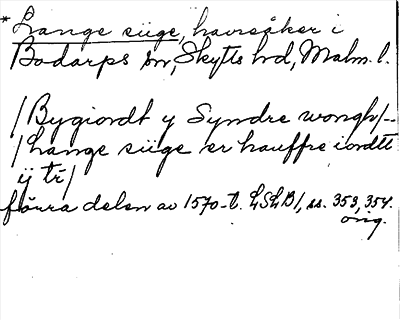 * Lange siige, havreåker i
Bodarps sn, Skytts hd, Malm. l.
/Bygiordt y Syndre wongh/--
/Lange siige er hauffre iordtt
ij tr/
förra delen av 1570-t. LSLB1, ss. 353, 354.
orig.